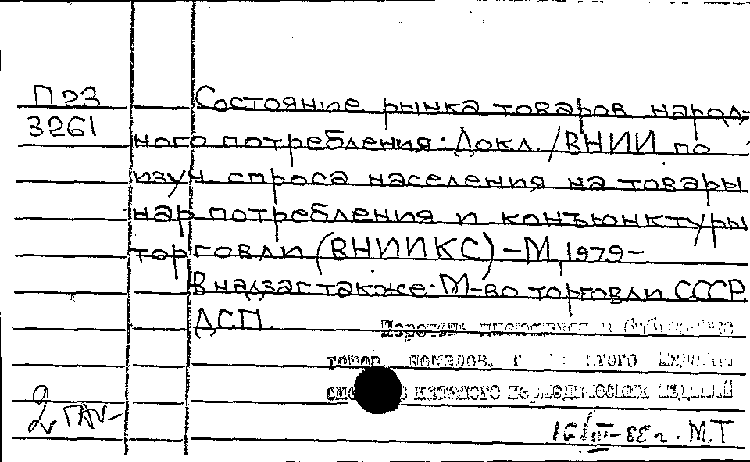 П23 Состояние рынка товаров народ-
3261 ного потребления: Докл. / ВНИИ по
изуч. спроса населения на товары
нар потребления и конъюнктуры
торговли (ВНИИКС) – М, 1979–
В надзаг также: М-во торговли СССР
ДСП.
в библиотеке
товар
каталоге периодических изданий
16/III-88г. М.Т